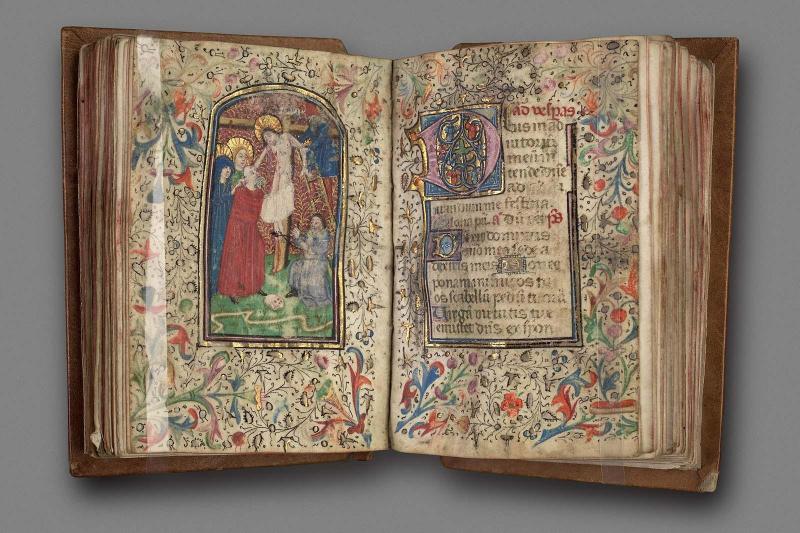 ad vesp̄as.
Eus in ad
iutoriū
meum
intende dn̄e
ad
iuuandum me festina
Gloria pr̄i. a. p̄s
Dixit dn̄s
dn̄o meo sede a
dextris meis
Donec
ponam inimicos tu
os scabellū pedū tuorū
Virgā virtutis tue
emittet dn̄s ex syon